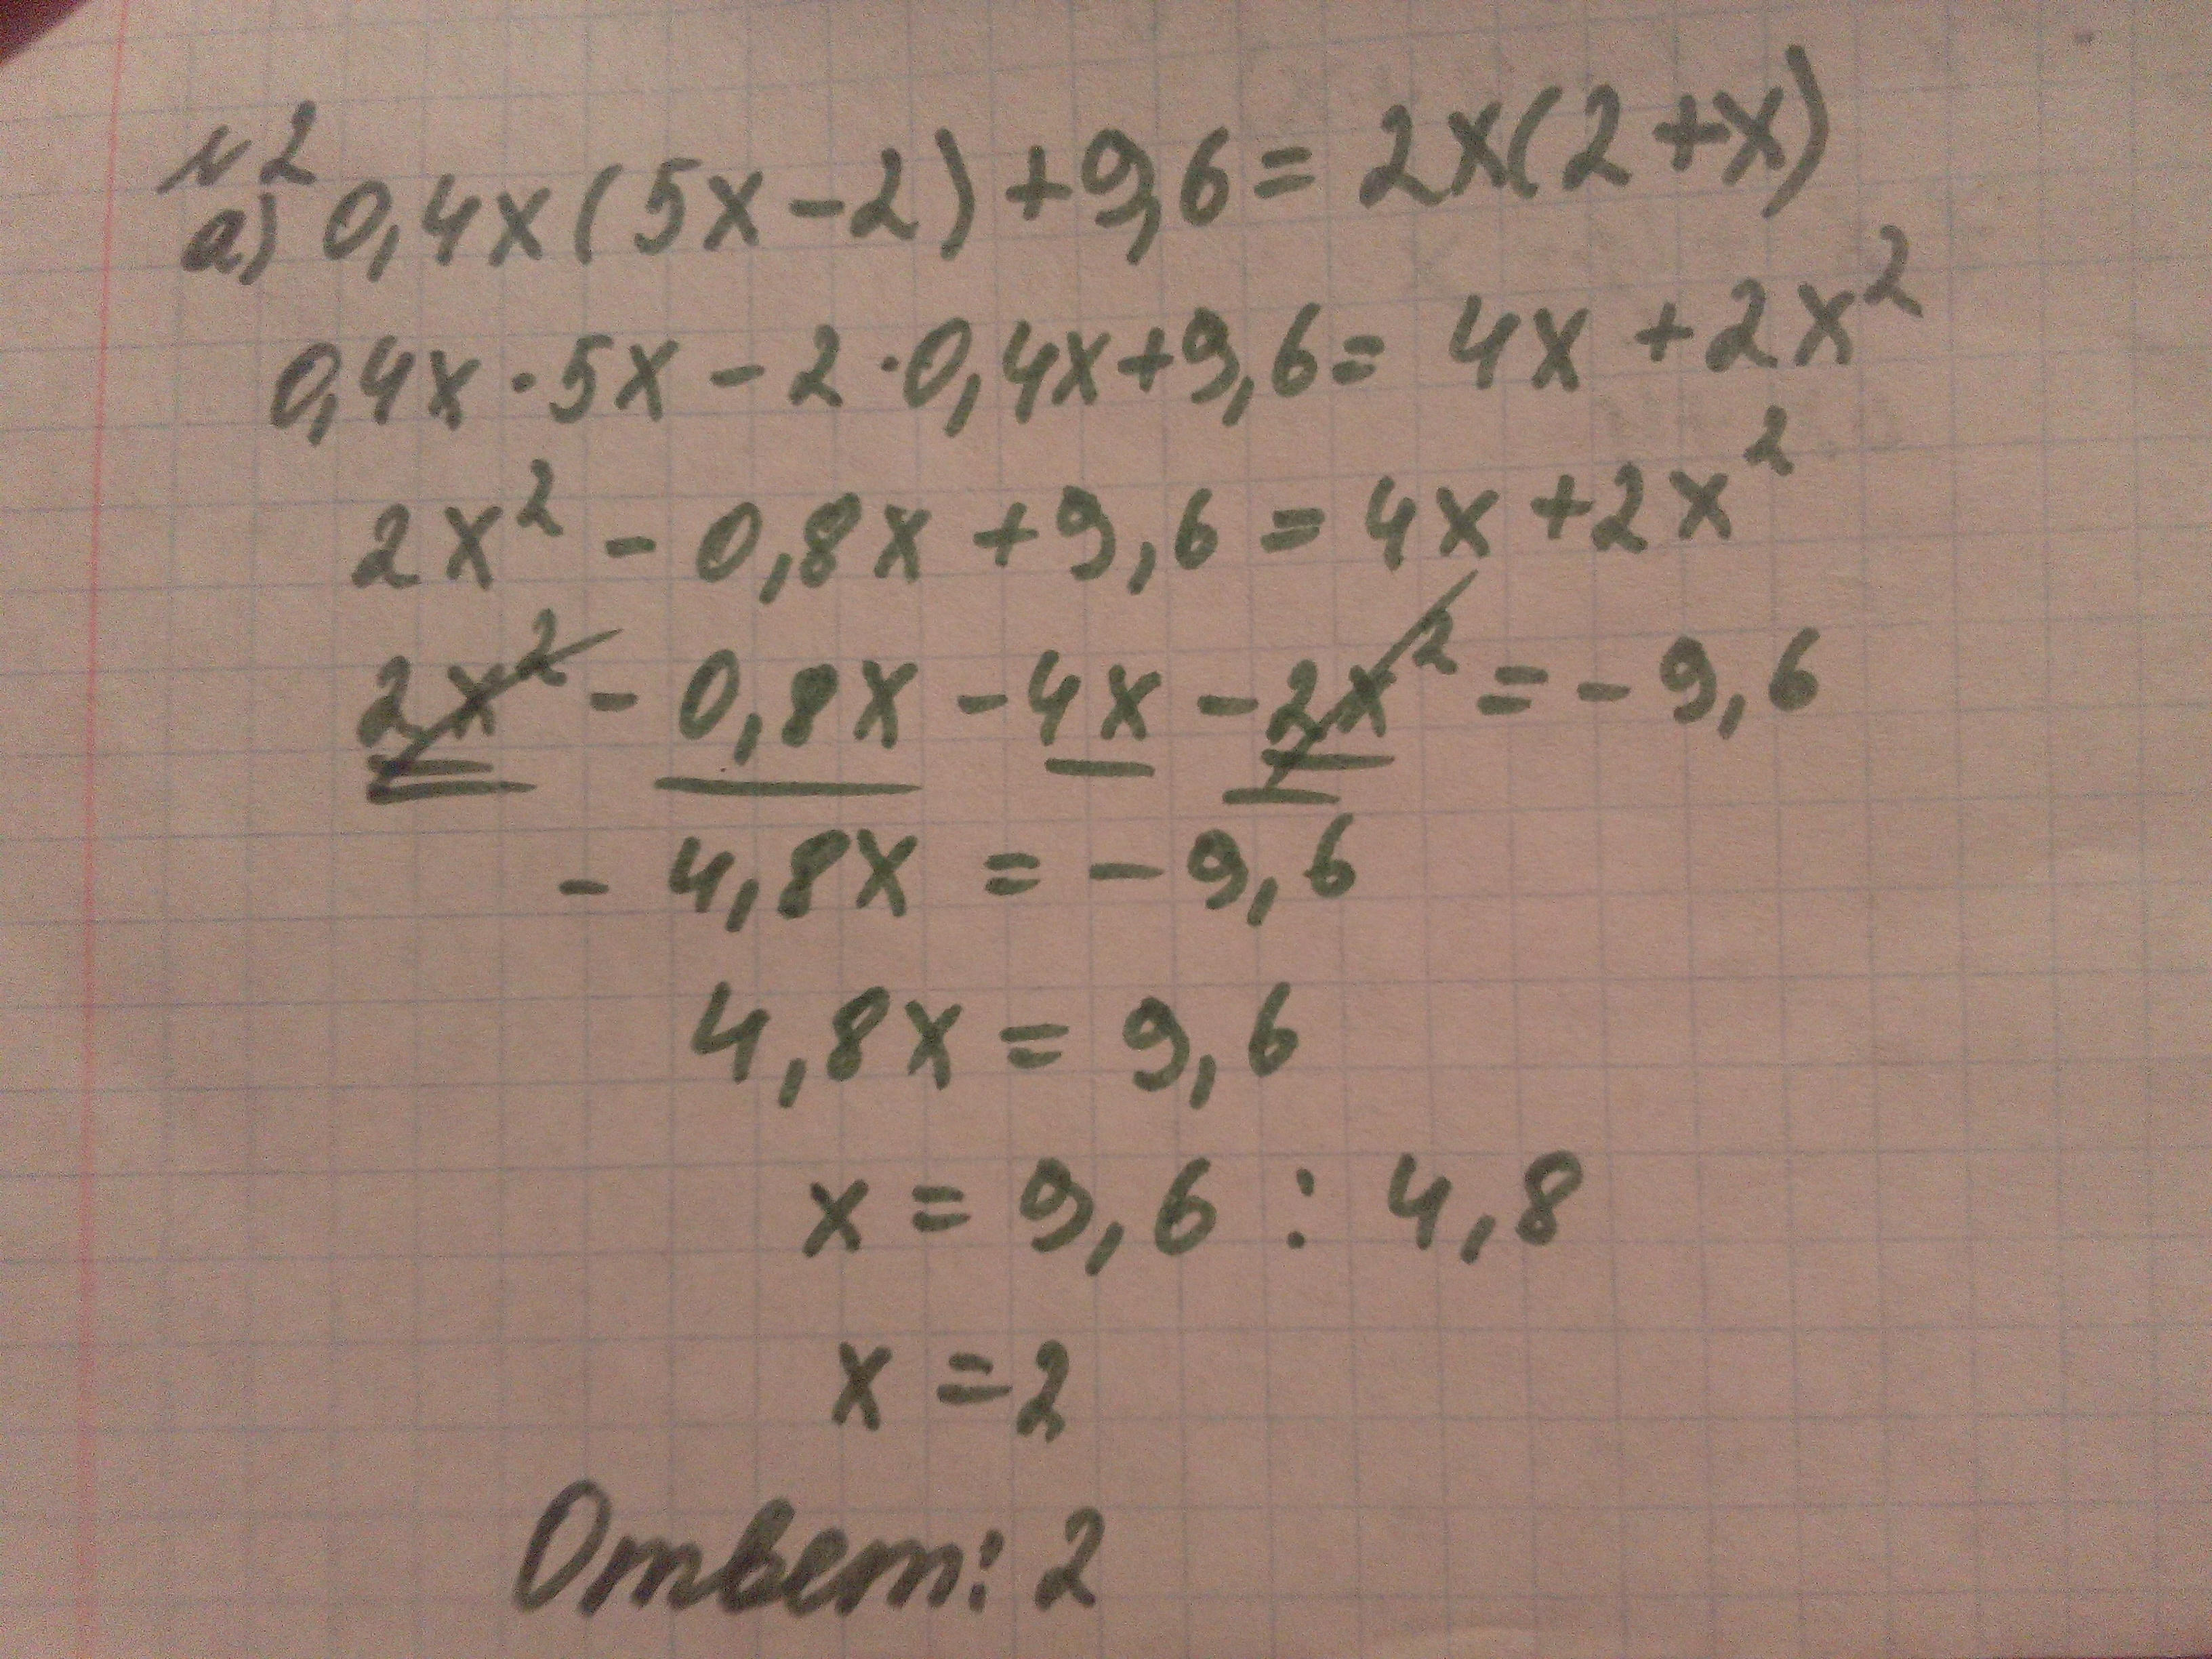 №2
а) 0,4x(5x-2)+9,6=2x(2+x)
0,4x·5x-2·0,4x+9,6=4x+2x²
2x²-0,8x+9,6=4x+2x²
2x²-0,8x-4x-2x²=-9,6
-4,8x=-9,6
4,8x=9,6
x=9,6:4,8
x=2
Ответ: 2